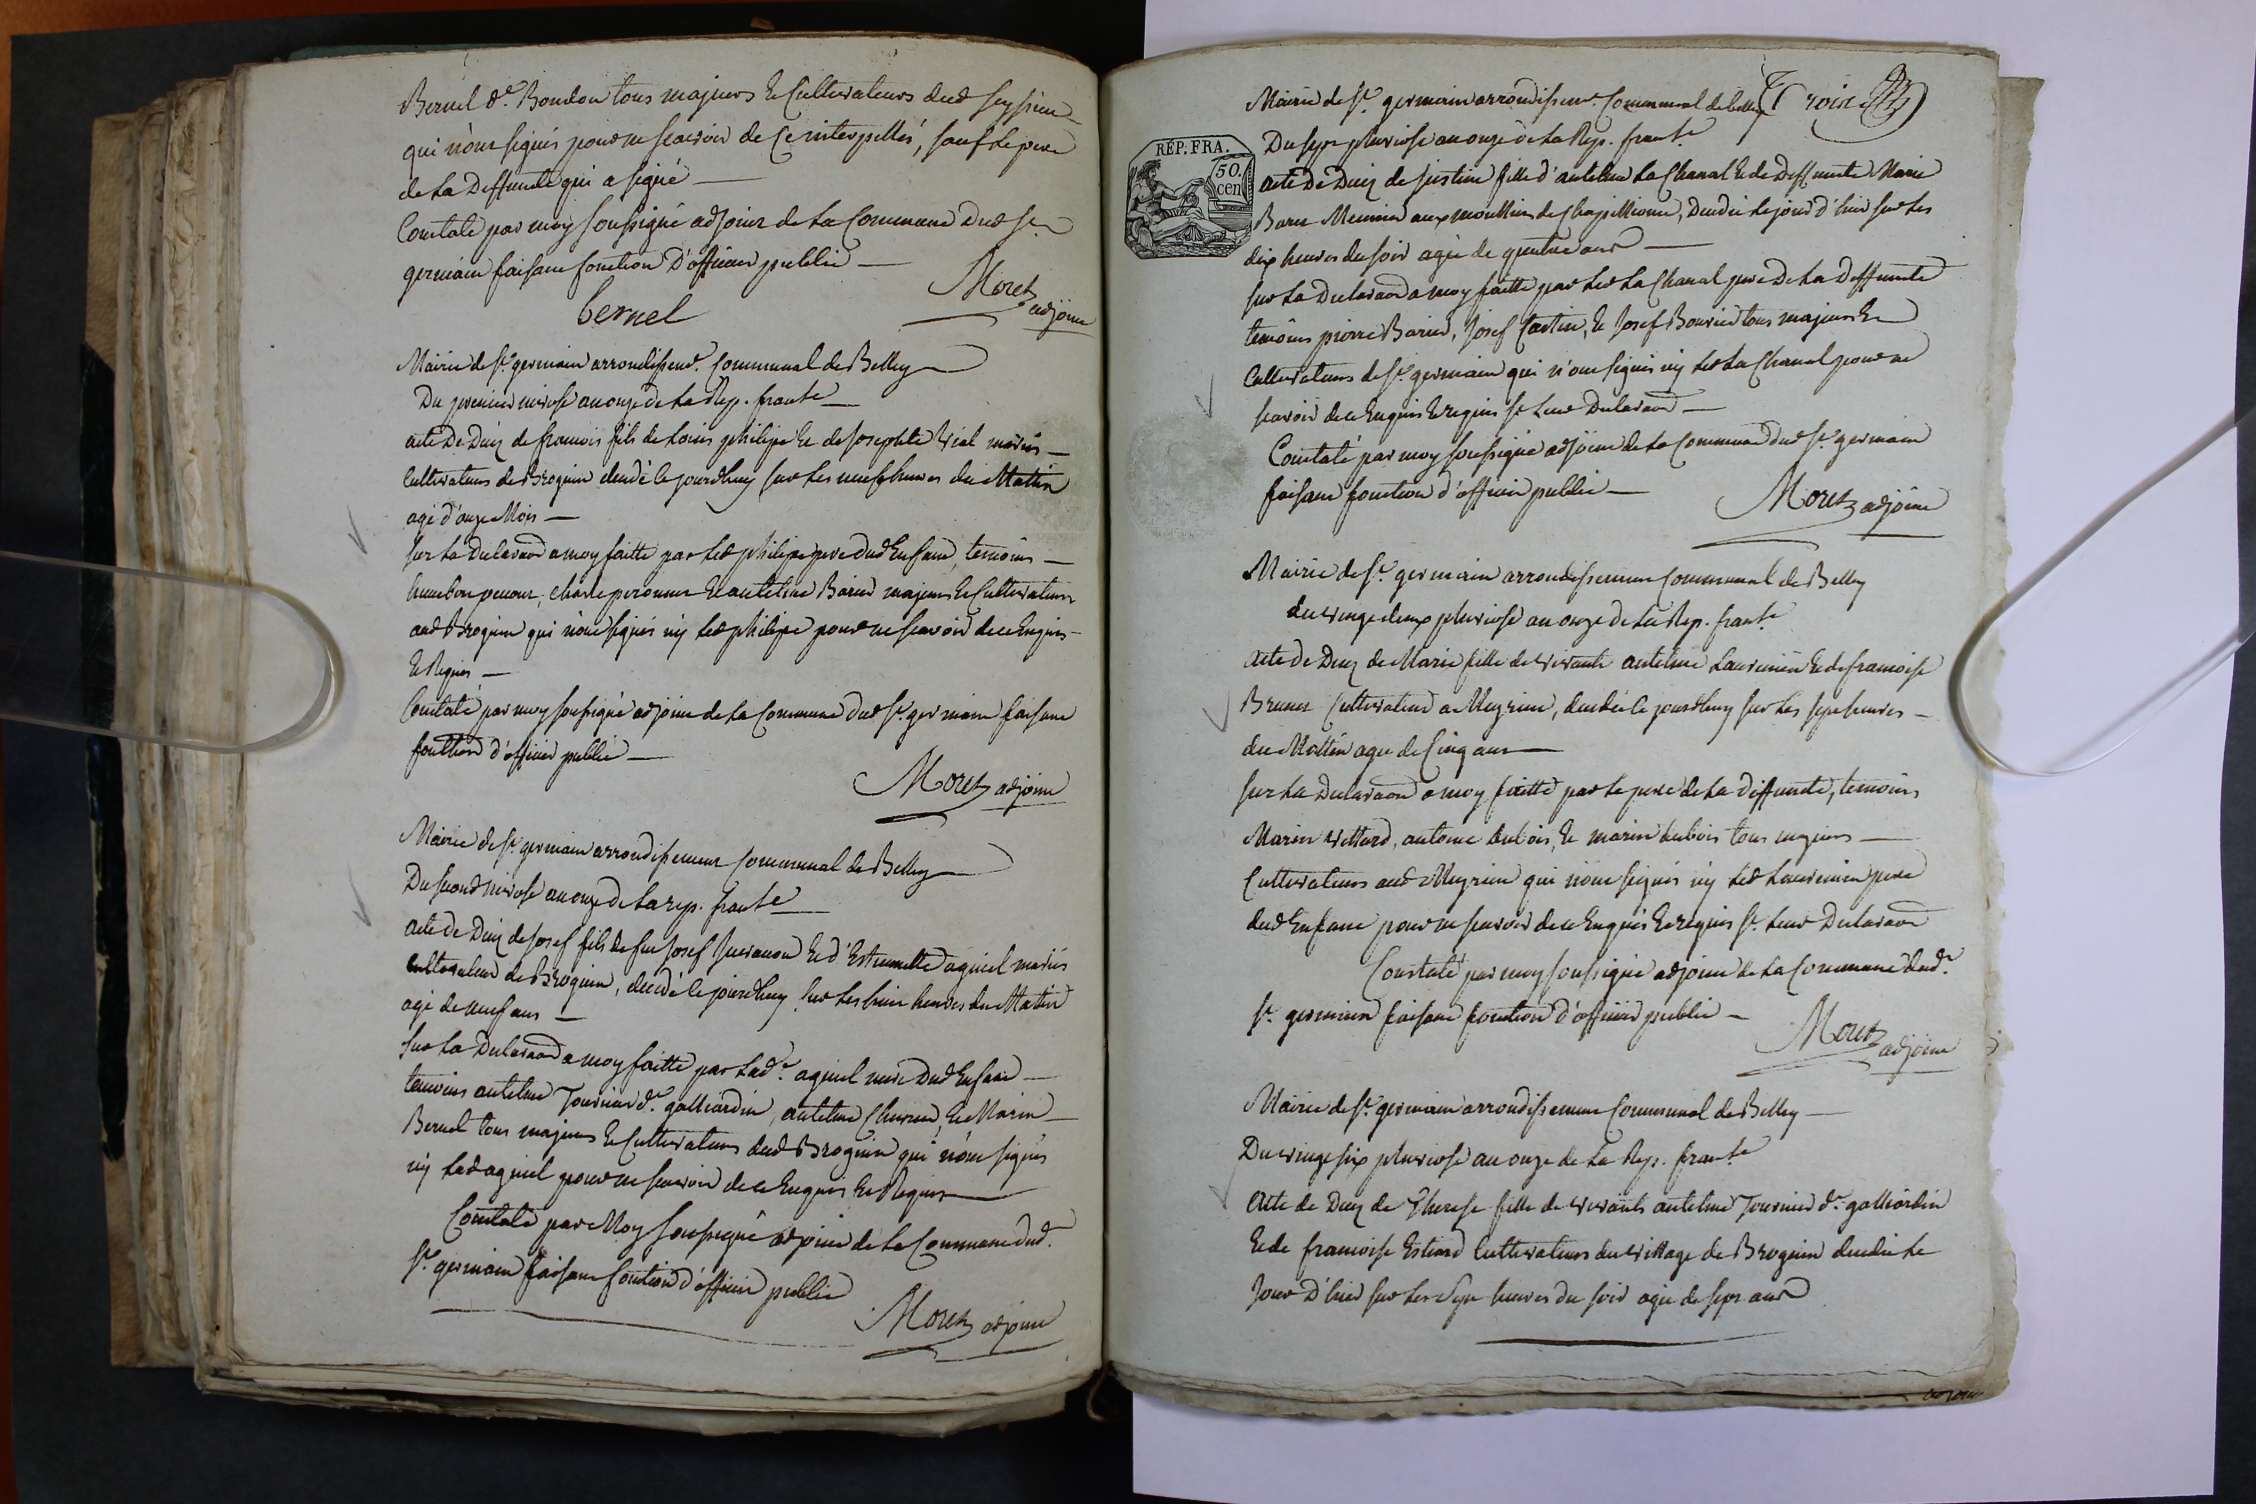 Bernel d.e Boudon tous majeurs & Cultivateurs dud Seyssieu
qui n'ont signés pour ne scavoir de Ce interpellés, sauf le pere
de La Deffunte qui a signé —
Constaté par moy soussigné adjoint de La Commune Dud St
germain faisant fonction D'officier public —
Moret adjoint
bernel
Mairie de St. germain arrondissemt. Communal de Belley
Du premier nivose an onze de La Rep. franse
acte De Deces de francois fils de Louis philipe & de Josephte Vial mariés —
Cultivateurs de Brognin decedé le jourdhuy sur Les neuf heures du Matin
agé d'onze Mois —
sur La Declaraon a moy faitte par Led philipe pere dud Enfant, temoins —
charle peronnet & antelme Barid majeurs & Cultivateurs
aud Brognin qui n'ont signés ny Led philipe pour ne scavoir de ce Enquis
& Requis —
Constaté par moy soussigné adjoint de La Commune dud St. germain faisant
fonction d'officier public —
Moret adjoint
Mairie de St. germain arrondissement Communal de Belley
Du second nivose an onze de La rep. franse
acte de Deces de Josef fils de feu Josef & d' aguiel mariés
Cultivateur de Brognin, decedé le jourdhuy sur Les huit heures du Matin
agé de neuf ans —
sur La Declaraon a moy faitte par Lade. aguiel mere Dud Enfant —
temoins antelme Tournier d.e galliardin, antelme & Marin
Bernel tous majeurs & Cultivateurs dud Brognin qui n'ont signés
ny Lad aguiel pour ne scavoir de ce Enquis & Requis
Constaté par Moy soussigné adjoint de La Commune Dud.
St. germain faisant fonction d'officier public
Moret adjoint
Mairie de St. germain arrondissemt. Communal de Belley
Trois
RÉP. FRA.
50.
cen
Du sept pluviose an onze de La Rep. franse
acte De Deces de Justine fille d'antelme La Chanal & de Deffunte Marie
Meunier aux moullins de , Decedée Le jour d'hier sur Les
dix heures du soir agée de quatre ans —
sur La Declaraon a moy faitte par Led La Chanal pere De La Deffunte
temoins pierre Barid, Josef , & Josef tous majeurs &
Cultivateurs de St. germain qui n'ont signés ny Led La Chanal pour ne
scavoir de ce Enquis & requis St. Leur Declaraon —
Constaté par moy soussigné adjoint de La Commune dud St. germain
faisant fonction d'officier public —
Moret adjoint
Mairie de St. germain arrondissement Communal de Belley
du vingt deux pluviose an onze de La Rep. franse
Acte de Deces de Marie fille de vivants antelme Laurencin & de francoise
Brunet Cultivateurs a Meyrieu, decedée le jourdhuy sur Les sept heures —
du Mattin agée de Cinq ans —
sur La Declaraon a moy faitte par Le pere de La deffunte, temoins
Marin Villard, antoine dubois, & marin dubois tous majeurs —
Cultivateurs aud Meyrieu qui n'ont signés ny Led Laurencin pere
dud Enfant pour ne scavoir de ce Enquis & requis St. Leur Declaraon
Constaté par moy soussigné adjoint de La Commune dud.
St. germain faisant fonction d'officier public —
Moret adjoint
Mairie de St. germain arrondissement Communal de Belley —
Du vingt six pluviose an onze de La Rep. franse
Acte de Deces de Therese fille de vivants antelme Tournier d.e galliardin
& de francoise Cultivateurs du village de Brognin decedée Le
Jour D'hier sur Les Sept heures du soir agée de sept ans